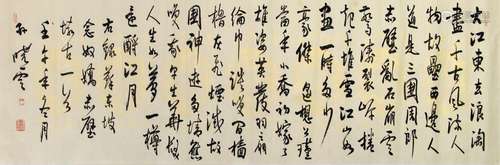 大江東去浪淘
盡千古風流人
物故壘西邊人
道是三國周郎
赤壁亂石崩雲
驚濤裂岸捲
起千堆雪江山如
畫一時多少
豪傑遙想公瑾
當年小喬初嫁了
雄姿英發羽扇
綸巾談笑間檣
櫓灰飛煙滅故
國神遊多情應
笑我早生華髮
人生如夢一樽
還酹江月
右錄蘇東坡
念奴嬌赤壁
懷古一首
壬午年冬月
孫曉雲